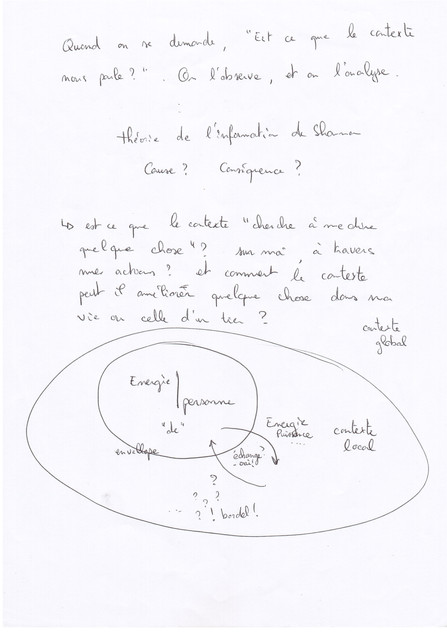 Quand on se demande, "Est ce que le contexte
nous parle ?". On l'observe, et on l'analyse.
théorie de l'information de Shannon
Cause ? Conséquence ?
↳ est ce que le contexte "cherche à me dire
quelque chose" ? sur moi, à travers
mes actions ? et comment le contexte
peut il améliorer quelque chose dans ma
vie ou celle d'un tiers ?
contexte
global
Energie | personne
"de"
enveloppe
Energie
Puissance
...
contexte
local
échange ?
- oui !
?
? ? ?
... ? ! bordel !